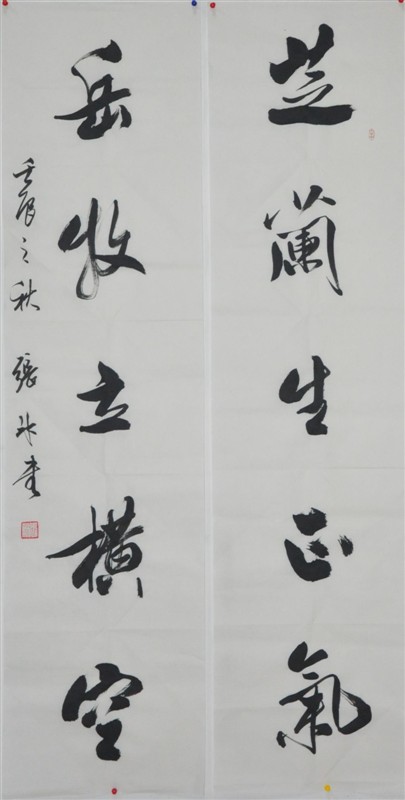 芝蘭生正氣
岳牧立橫空
壬辰之秋 張冰書